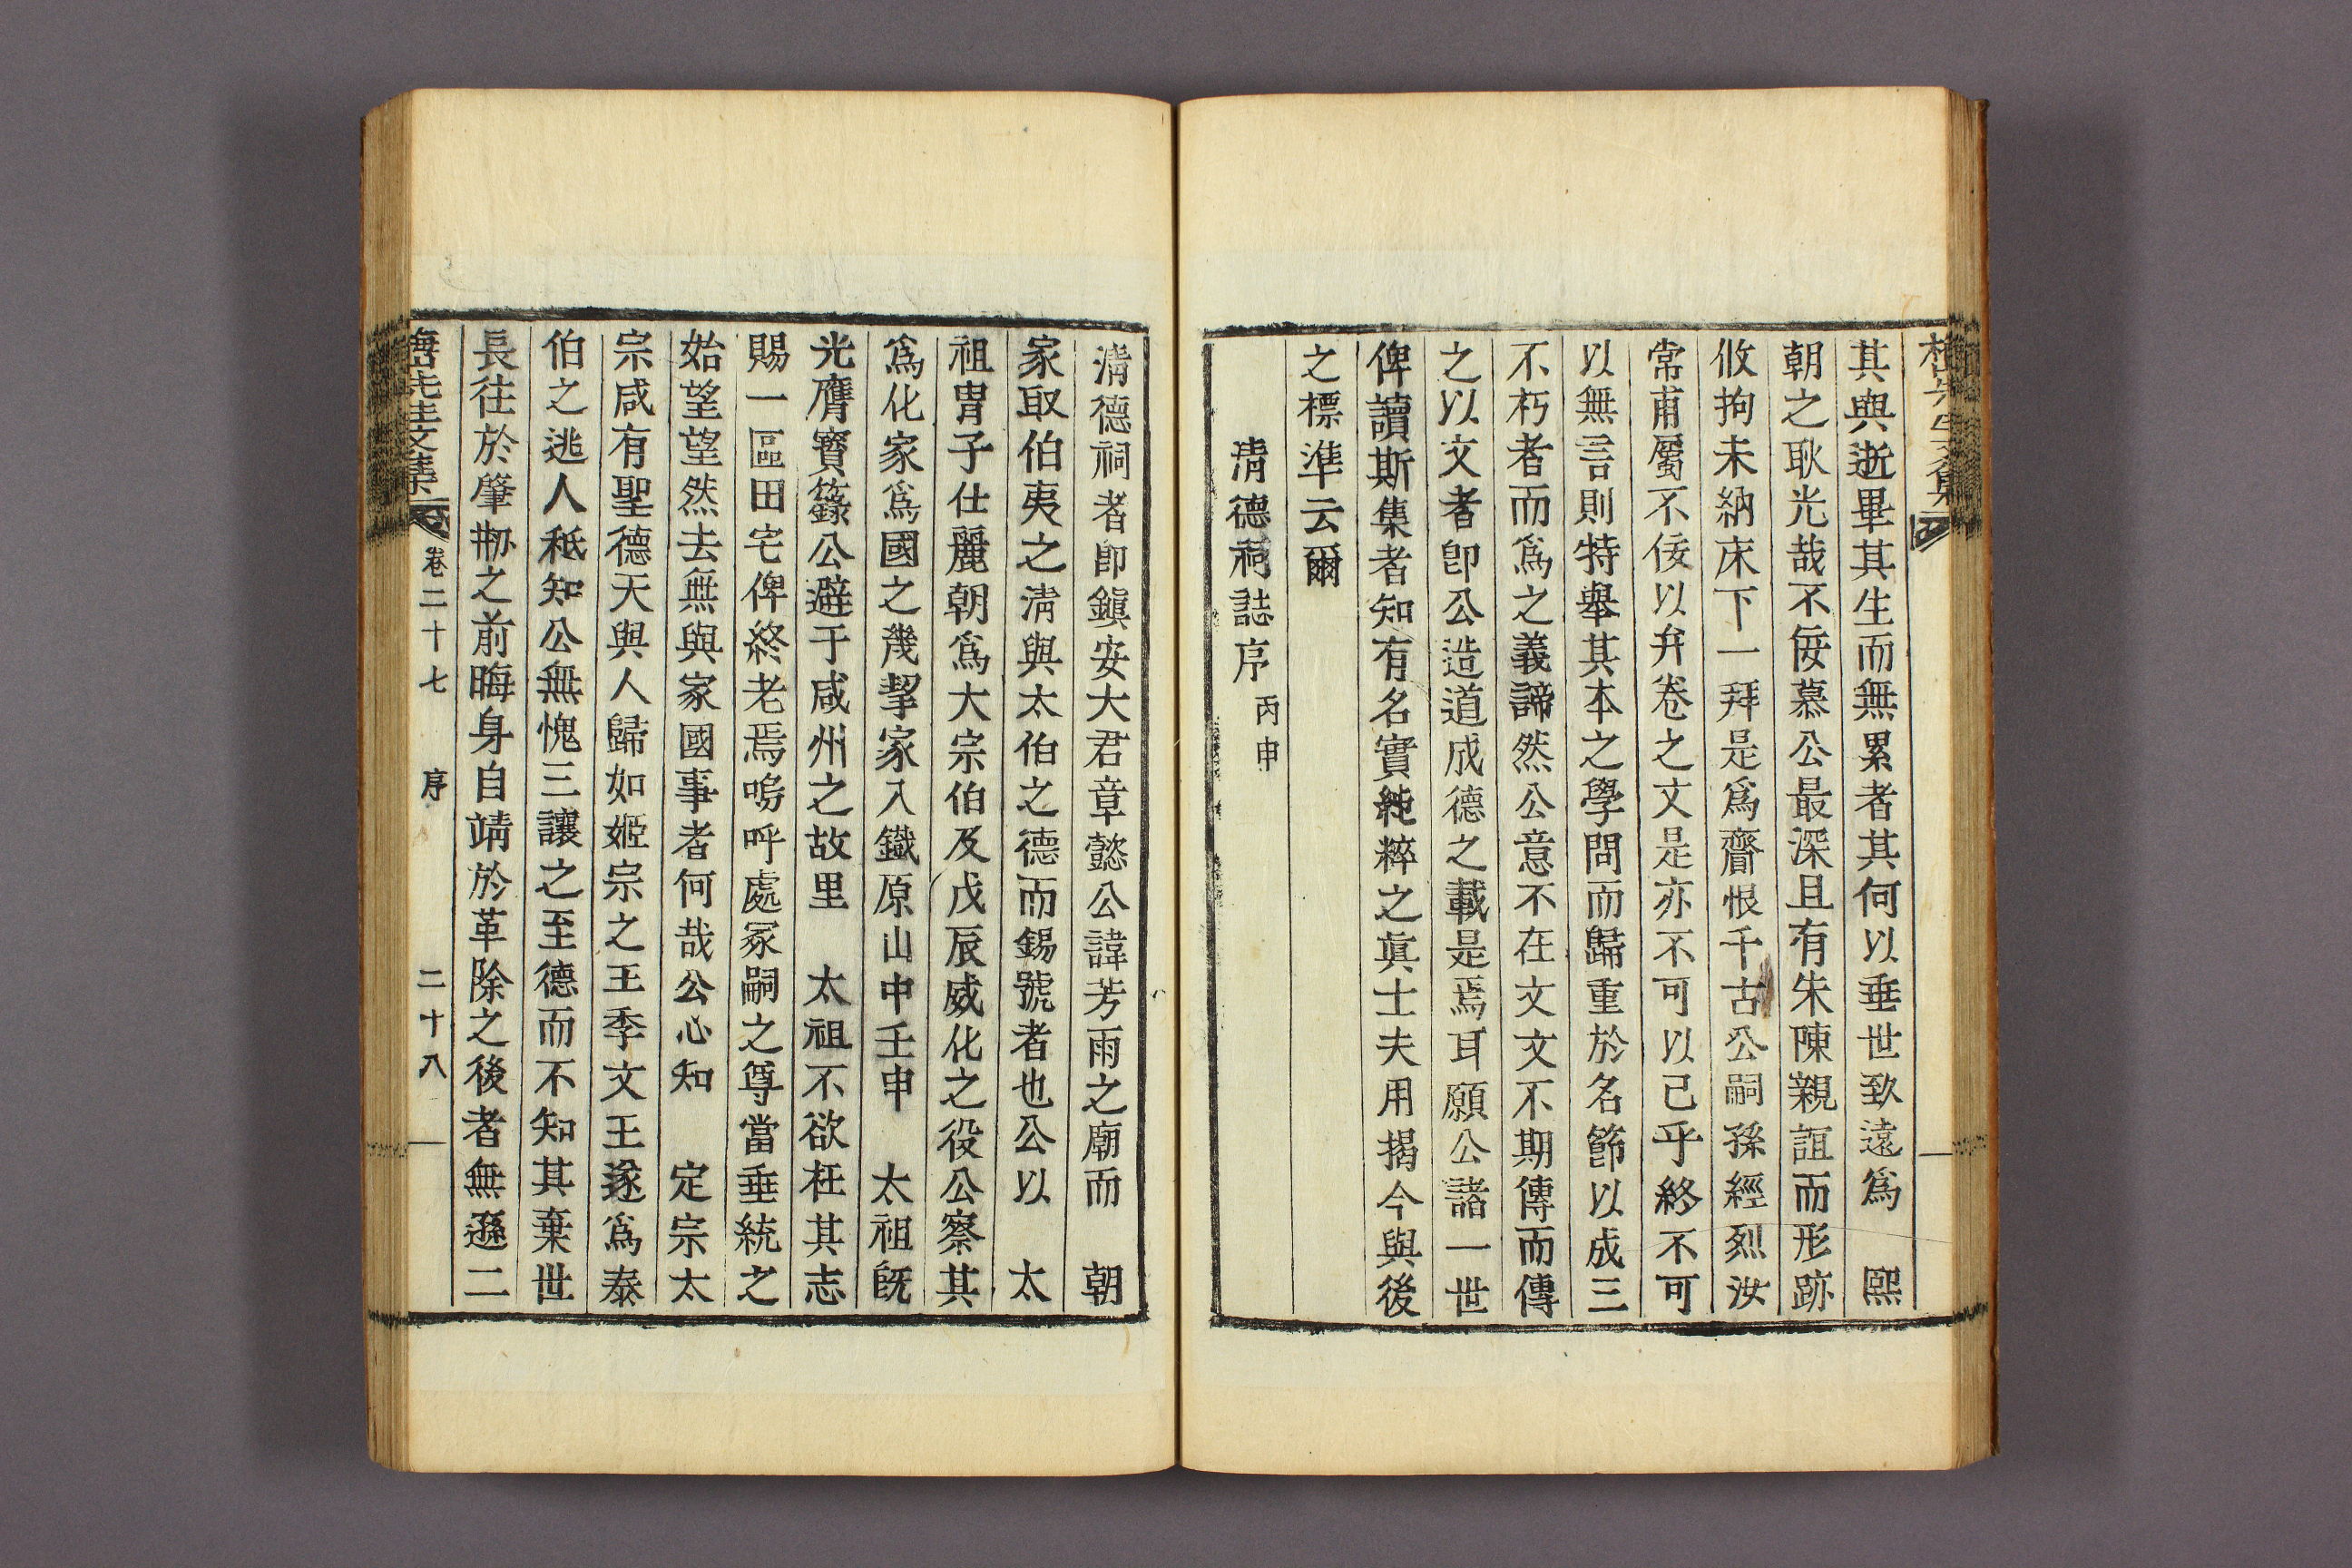 其與逝畢其生而無累者其何以垂世致遠爲　熙
朝之耿光哉不佞慕公最深且有朱陳親誼而形跡
攸拘未納床下一拜是爲齎恨千古公嗣孫經烈汝
常甫屬不佞以弁卷之文是亦不可以已乎終不可
以無言則特舉其本之學問而歸重於名節以成三
不朽者而爲之義諦然公意不在文文不期傳而傳
之以文者卽公造道成德之載是焉耳願公諸一世
俾讀斯集者知有名實純粹之眞士夫用揭今與後
之標準云爾
淸德祠誌序 丙申
淸德祠者卽鎭安大君章懿公諱芳雨之廟而　朝
家取伯夷之淸與太伯之德而錫號者也公以　太
祖胄子仕麗朝爲大宗伯及戊辰威化之役公察其
爲化家爲國之幾挈家入鐵原山中壬申　太祖旣
光膺寶籙公避于咸州之故里　太祖不欲枉其志
賜一區田宅俾終老焉嗚呼處冢嗣之尊當垂統之
始望望然去無與家國事者何哉公心知　定宗太
宗咸有聖德天與人歸如姬宗之王季文王遂爲泰
伯之逃人秖知公無愧三讓之至德而不知其棄世
長往於肇刱之前晦身自靖於革除之後者無遜二
先生文集 卷二十七 序 二十八